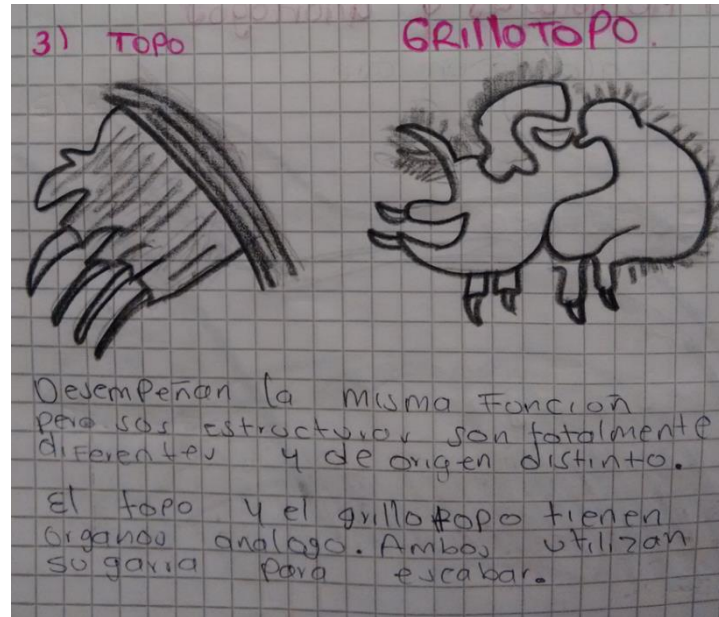 3) TOPO
GRILLOTOPO.
Desempeñan la misma Función
pero sus estructuras son totalmente
diferentes y de origen distinto.
El topo y el grillotopo tienen
organos analago. Ambos utilizan
su garra para escabar.